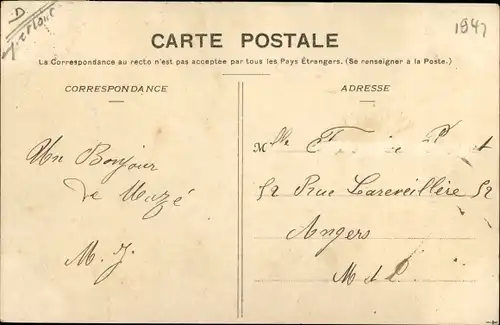 D
1947
CARTE POSTALE
La Correspondance au recto n'est pas acceptée par tous les Pays Étrangers. (Se renseigner à la Poste.)
CORRESPONDANCE
ADRESSE
Un Bonjour
de Mazé
M. J.
Mlle
52 Rue Lareveillère 52
Angers
M et L